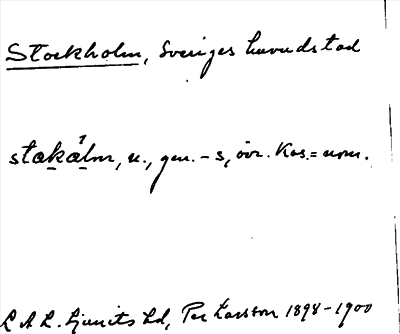 Stockholm, Sveriges huvudstad
stakålm, n., gen. -s, övr. Kas. = nom.
L A L. Ljunits hd, Per Larsson 1898-1900